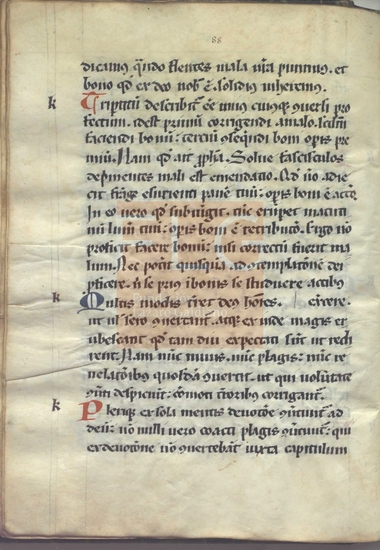 88
dicamus quando flentes mala nostra punimus. et
bono quod ex deo nobis est solidius inheremus.
k Triptitum describitur esse
fectum. idest primum corrigendi a malo. secundum
faciendi bonum: tercium consequendi boni operis pre
mium. Nam quod ait propheta. Solve fasciculos
deprimentes mali est emendatio. Ad
cit frange esurienti panem tuum: operis boni est
In eo vero quod subiungit. tunc erumpet
lumen tuum: operis boni est retributio. Ergo non
proficit facere bonum: nisi correctum fuerit ma
lum. Nec potest quisquam ad contemplationem dei
ficere. nisi se prius in bonis studuerit actibus
k Multis modis terret deus homines.
ut vel sero convertantur. atque exinde magis er
ubescant quod tam diu expectati sunt ut redi
rent. Nam nunc minis. nunc plagis: nunc re
velationibus quosdam convertit. ut qui voluntate
converti despiciunt: commoti terroribus corrigantur.
k Plerique ex sola mentis devotione convertuntur ad
deum: non nulli vero coacti plagis convertuntur: qui
ex devotione non convertebantur iuxta capitulum